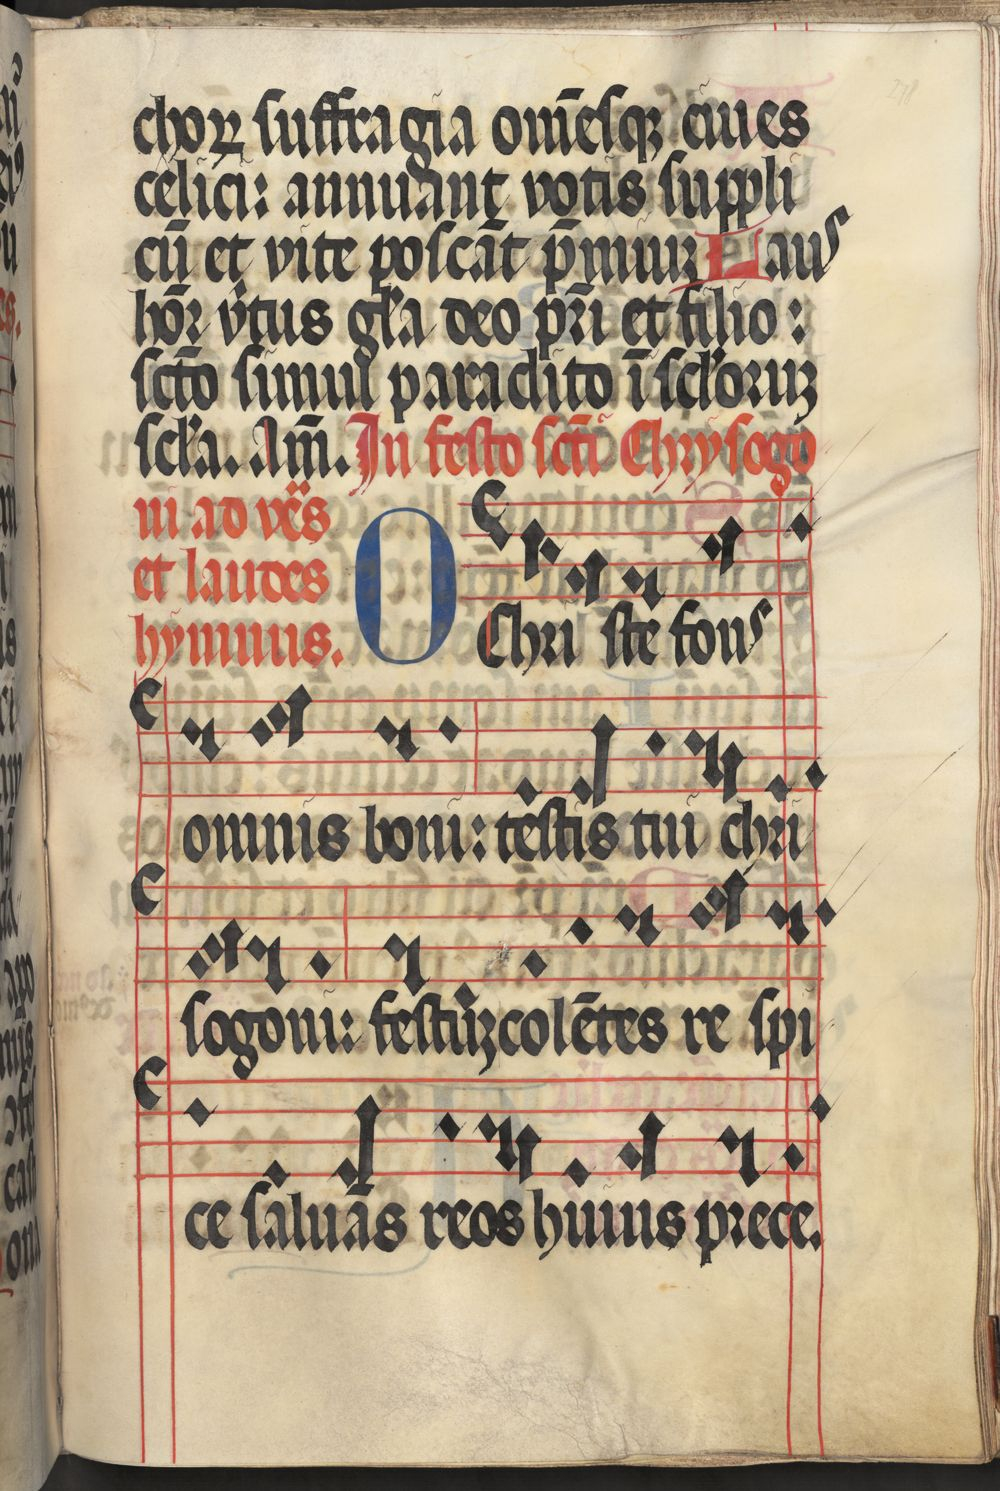 choꝝ suffragia om̄esqꝫ ciues
celici: annuant votis suppli
cū et vite poscāt p̄miuꝫ Laus
hōr v̓tus gl̓a deo pr̄i et filio:
scto̅ simul paraclito ī scl̓oruꝫ
scl̓a. Am̄. In festo sctī Chrysogo
ni ad ves̄
et laudes
hymnus.
O Chri ste fons
omnis boni: testis tui chri
sogoni: festūꝫ colētes re spi
ce saluās reos huius prece.
278